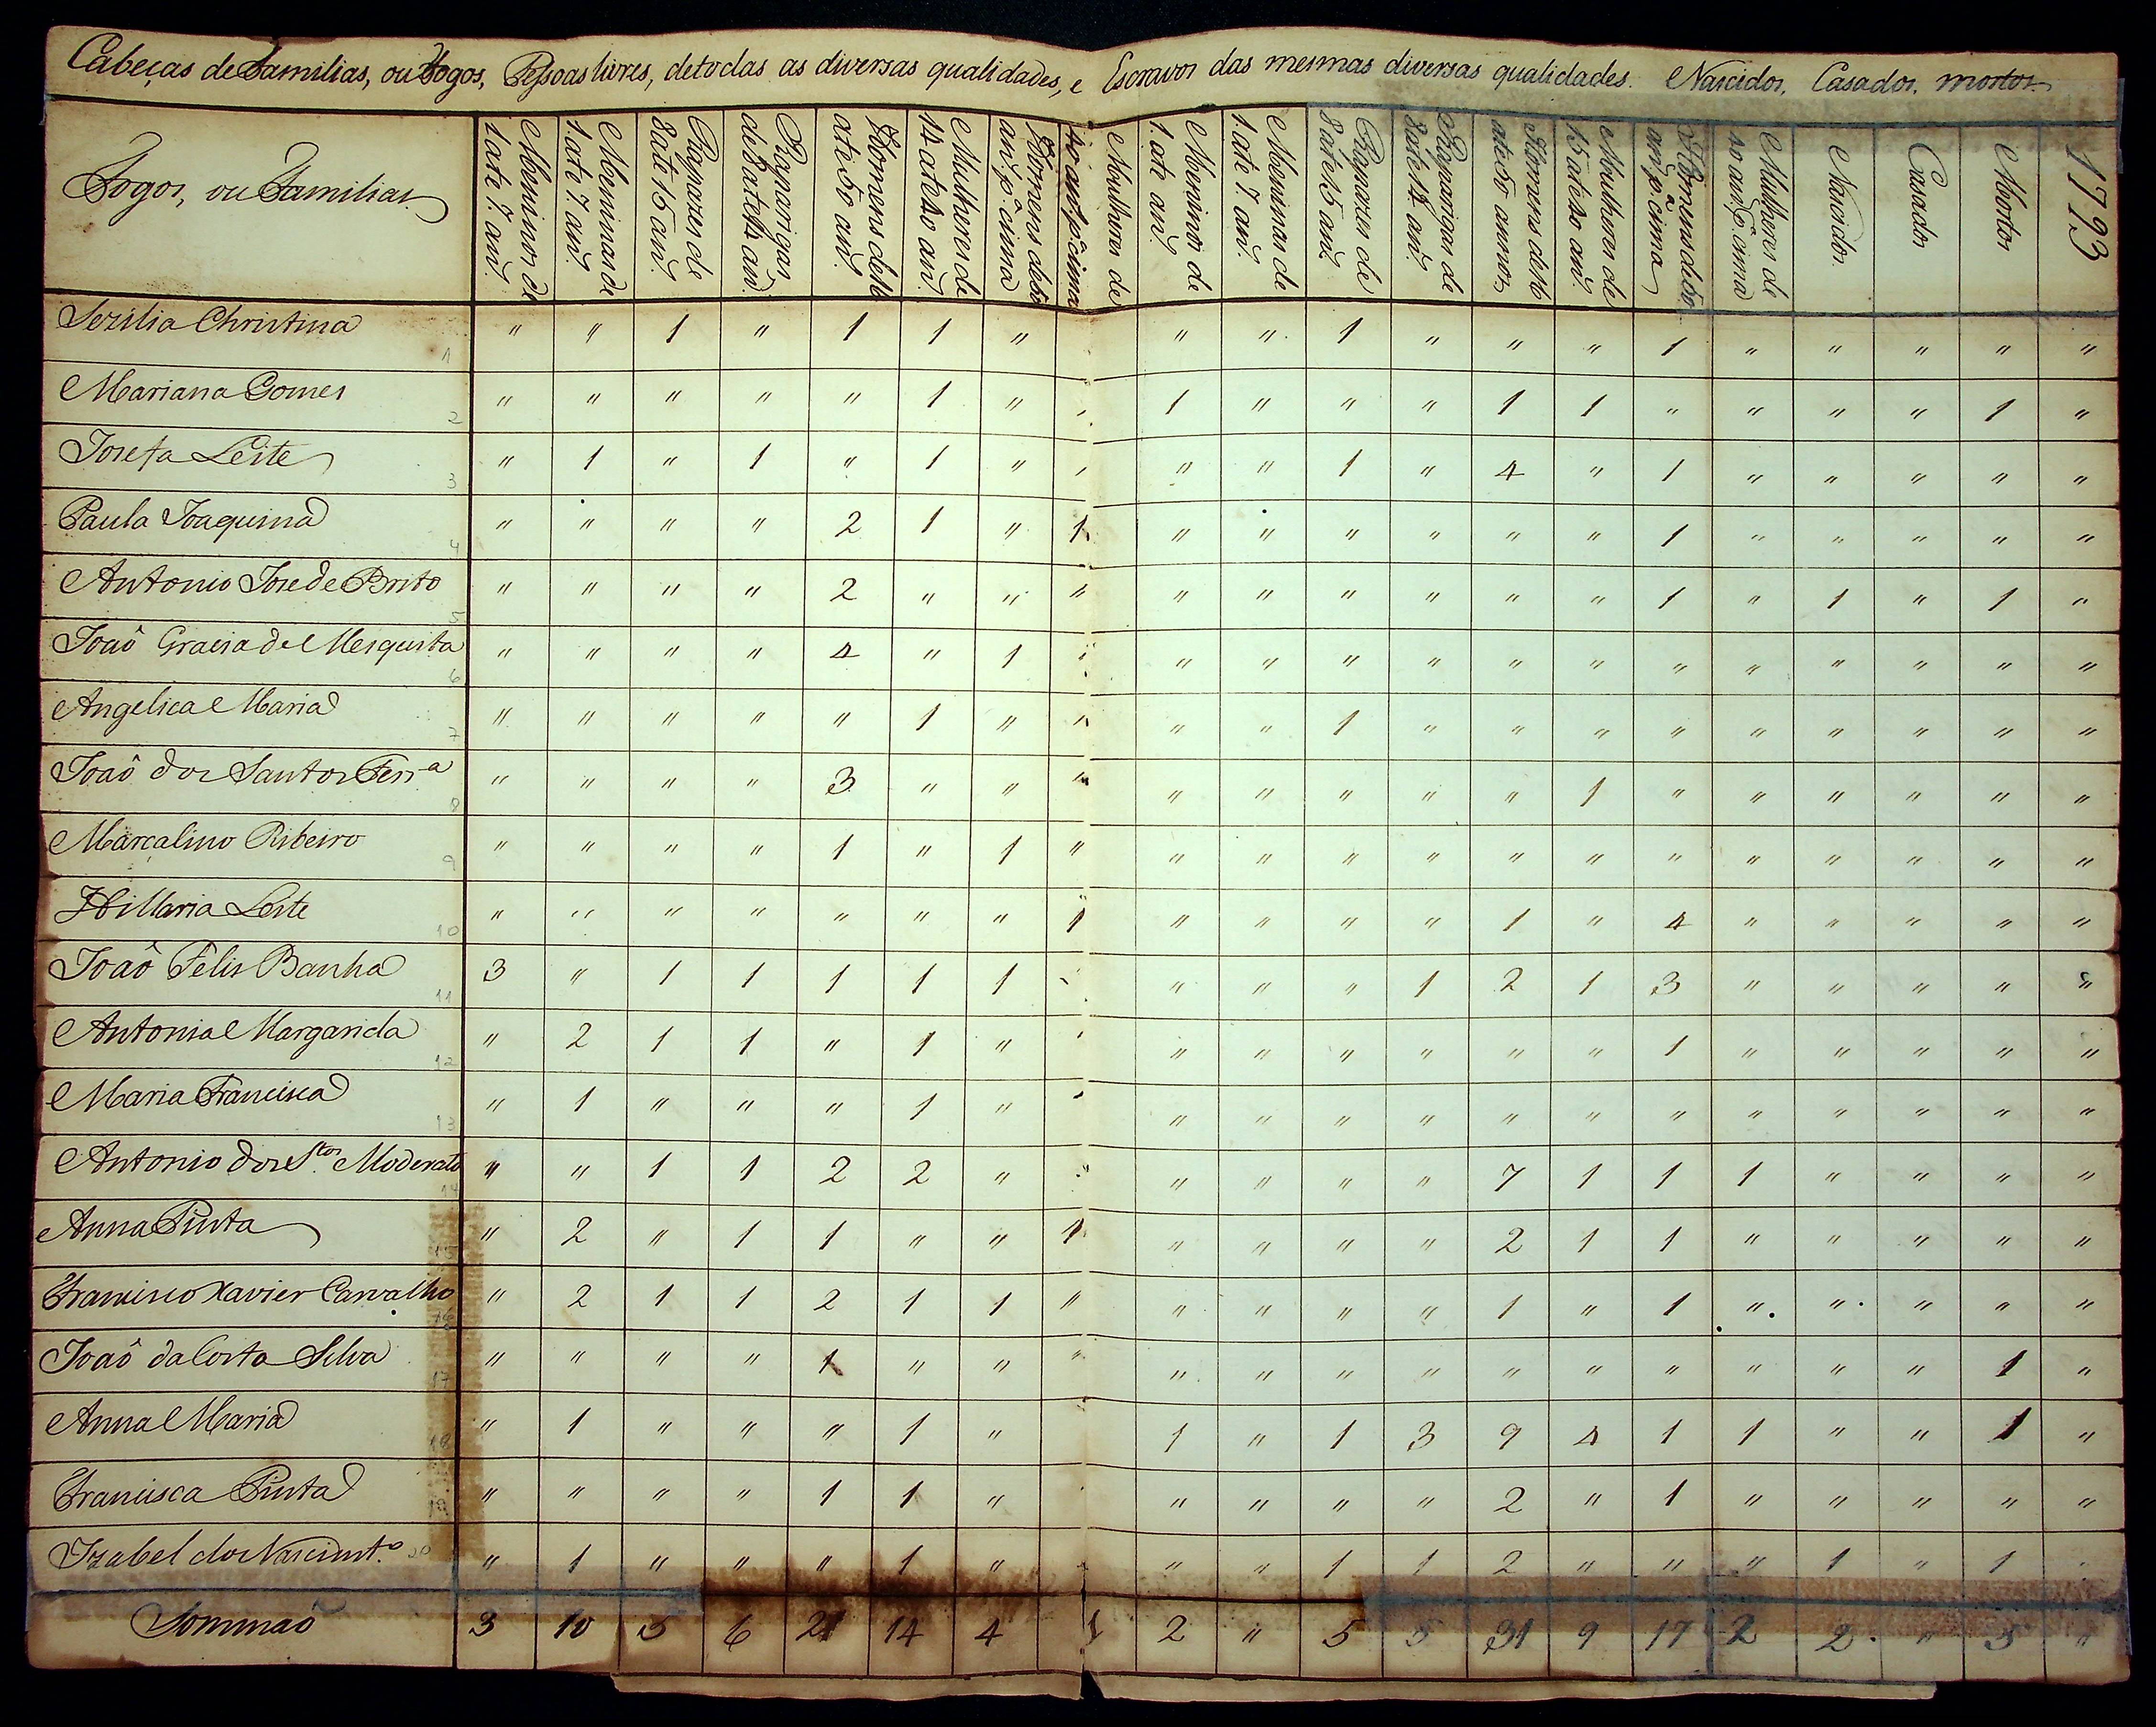 Cabeças de Familias, ou Fogos, Pessoas livres, de todas as diversas qualidades, e Escravos das mesmas diversas qualidades. Nascidos, Casados, mortos
Fogos, ou Familias
Meninos de 1 ate 7 an.
Meninas de 1. ate 7. an.
Rapazes de 8 até 15 an.
Raparigas de 8 ate 14 an.
Homens de 16 ate 50 an.
Mulheres de 14 ate 40 an.
Homens de 50 an. p.ª cima
Mulheres de 40 an. p.ª cima
Meninos de 1. ate an.
Meninas de 1 até 7 an.
Rapazes de 8 ate 15 an.
Raparigas de 8 ate 14 an.
Homens de 16 ate 50 annos
Mulheres de 15 ate 40 an.
Homens de 50 an. p.ª cima
Mulheres de 40 an. p.ª cima
Nascidos
Casados
Mortos
1793
Sezilia Christina 1 " " 1 " 1 1 " " " 1 " " " 1 " " " " "
Mariana Gomes 2 " " " " " 1 " " 1 " " " 1 1 " " " " 1 "
Josefa Leite 3 " 1 " 1 " 1 " " " " 1 " 4 " 1 " " " " "
Paula Joaquina 4 " " " " 2 1 " 1 " " " " " " 1 " " " " "
Antonio Jose de Brito 5 " " " " 2 " " " " " " " " " 1 " 1 " 1 "
Joaô Gracia de Mesquita 6 " " " " 4 " 1 " " " " " " " " " " " " "
Angelica Maria 7 " " " " " 1 " " " " 1 " " " " " " " " "
Joaô dos Santos Ferr.ª 8 " " " " 3 " " " " " " " " 1 " " " " " "
Marcalino Ribeiro 9 " " " " 1 " 1 " " " " " " " " " " " " "
Hillaria Leite 10 " " " " " " " 1 " " " " 1 " 4 " " " " "
Joaô Felis Banha 11 3 " 1 1 1 1 1 " " " " 1 2 1 3 " " " " "
Antonia Margarida 12 " 2 1 1 " 1 " " " " " " " " 1 " " " " "
Maria Francisca 13 " 1 " " " 1 " " " " " " " " " " " " " "
Antonio dos S.tos Moderato 14 " " 1 1 2 2 " " " " " " 7 1 1 1 " " " "
Anna Pinta 15 " 2 " 1 1 " " 1 " " " " 2 1 1 " " " " "
Francisco Xavier Carvalho 16 " 2 1 1 2 1 1 " " " " " 1 " 1 " " " " "
Joaô da Costa Silva 17 " " " " 1 " " " " " " " " " " " " " 1 "
Anna Maria 18 " 1 " " " 1 " 1 " 1 3 9 4 1 1 " " 1 "
Francisca Pinta 19 " " " " 1 1 " " " " " 2 " 1 " " " " "
Izabel do Nascimt.º 20 " 1 " " " 1 " " " 1 1 2 " " " 1 " 1
Sommaô 3 10 5 6 21 14 4 2 " 5 5 31 9 17 2 2 " 5 "